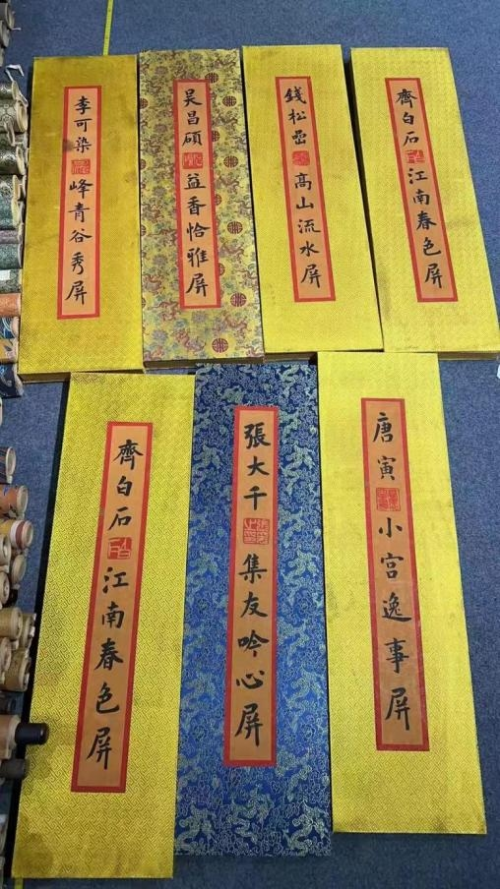 李可染峰青谷秀屏
吴昌硕益香恰雅屏
錢松嵒高山流水屏
齊白石江南春色屏
齊白石江南春色屏
張大千集友吟心屏
唐寅小宫逸事屏